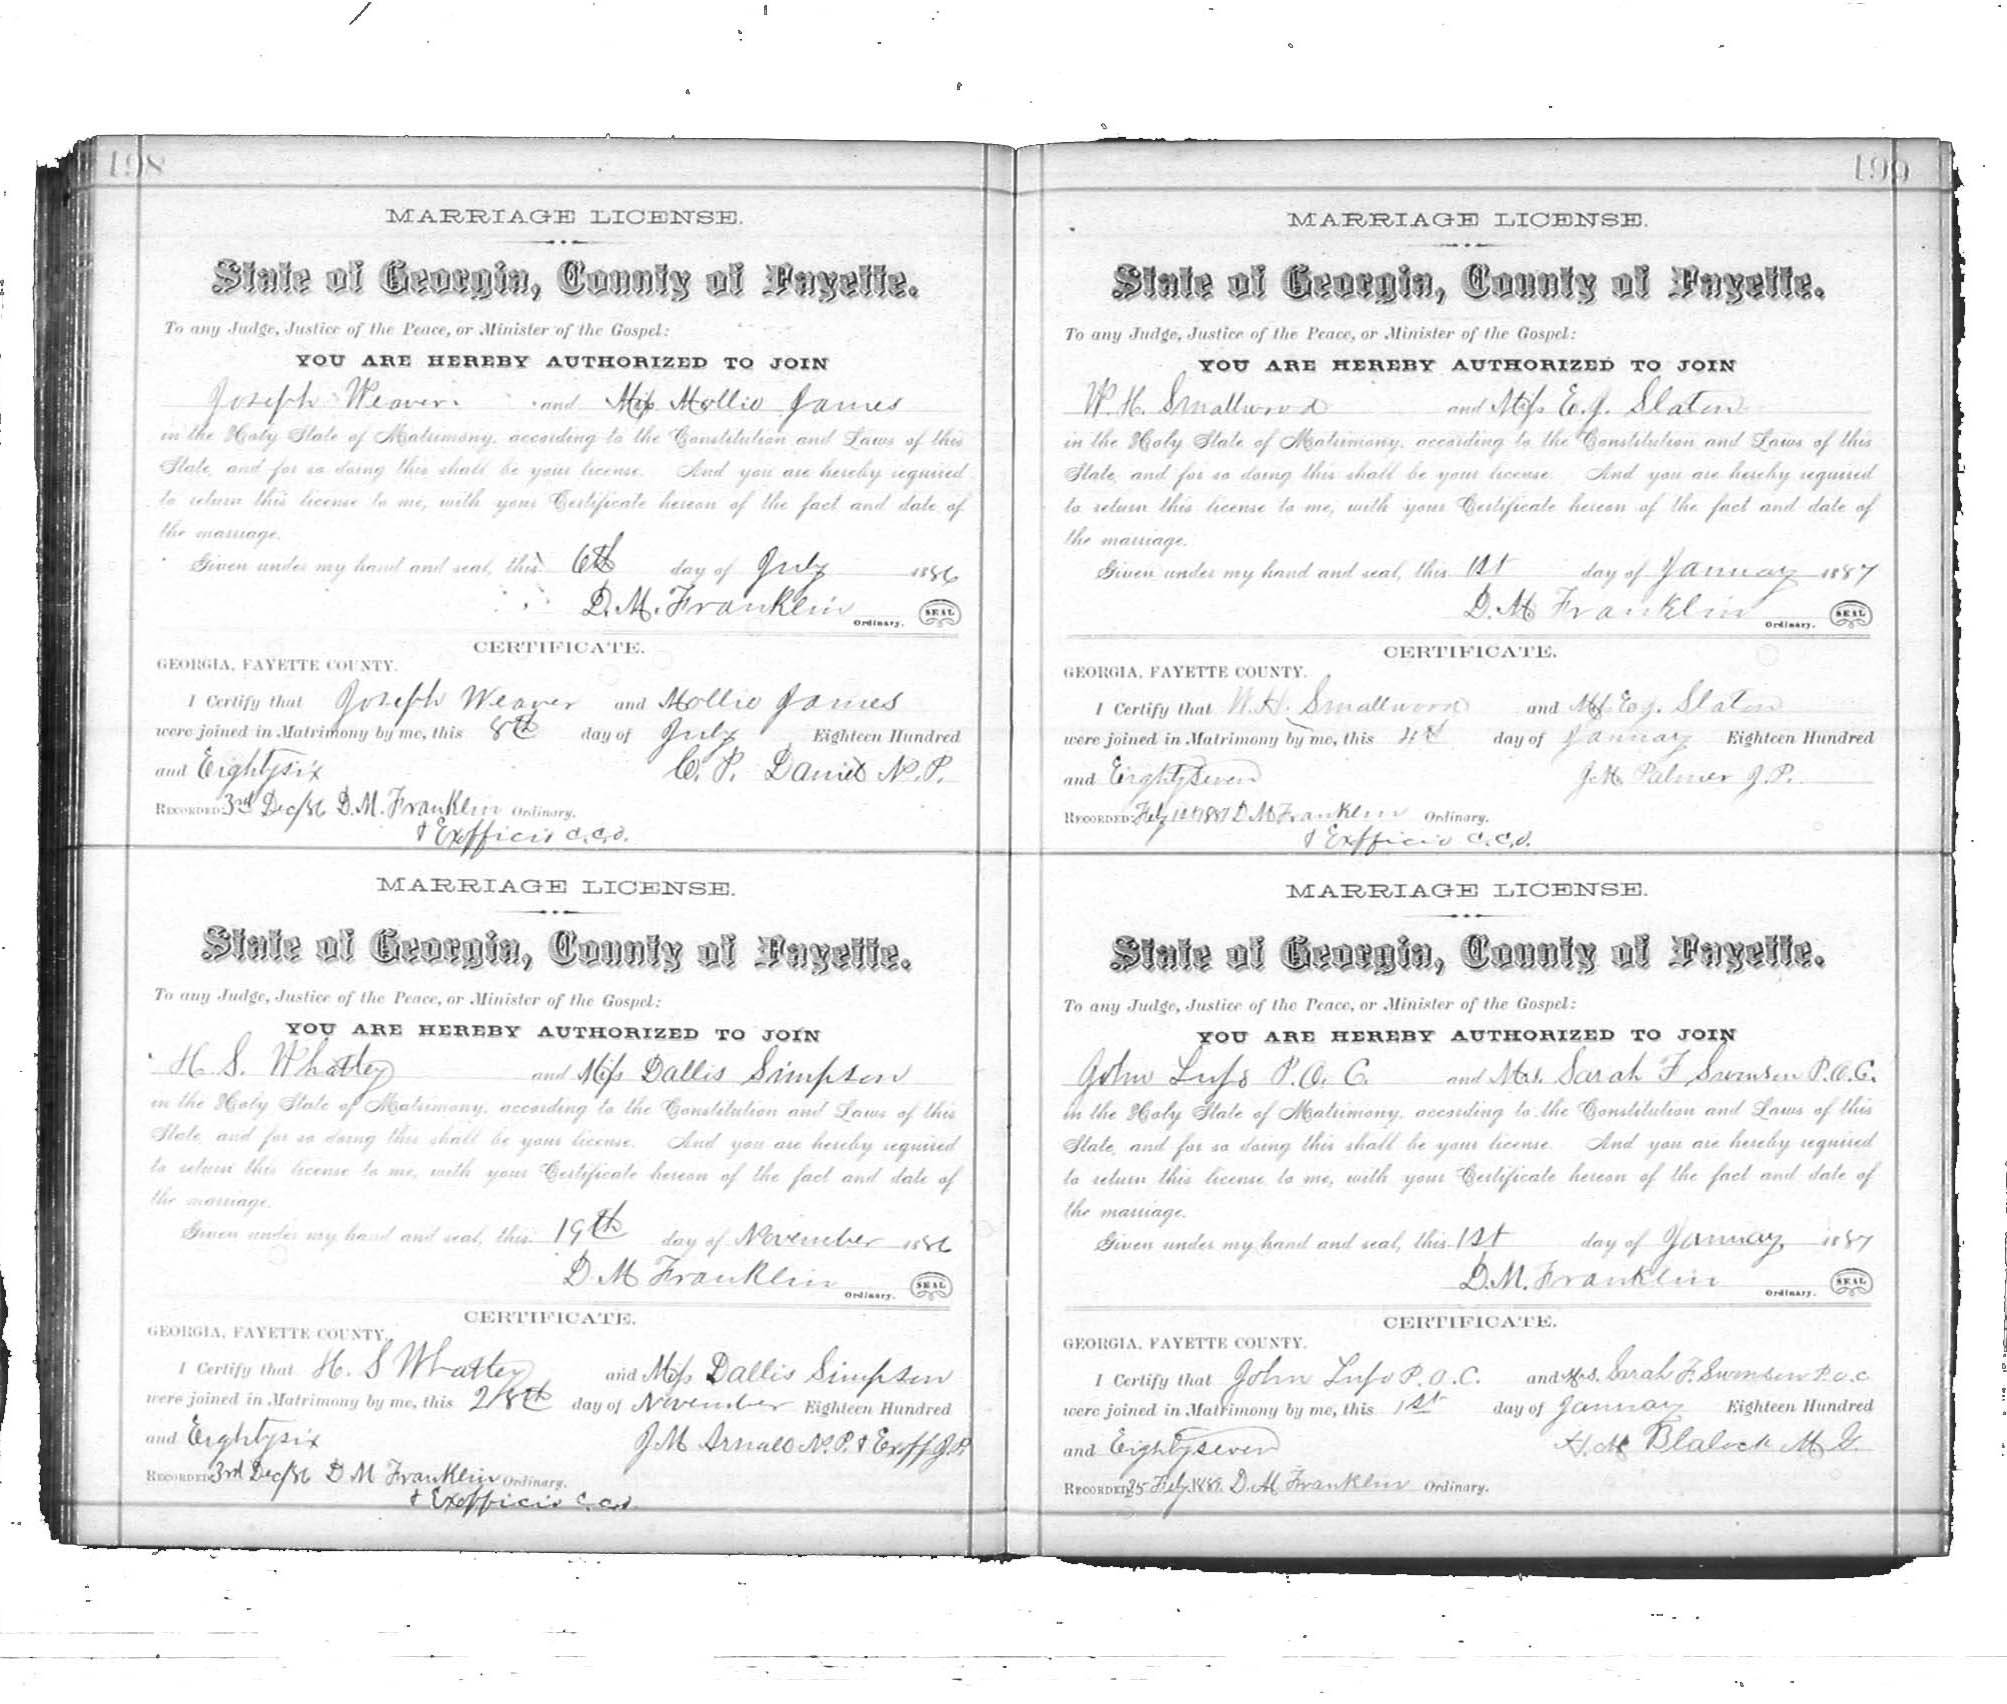 198
MARRIAGE LICENSE.
State of Georgia, County of Fayette.
To any Judge, Justice of the Peace, or Minister of the Gospel:
YOU ARE HEREBY AUTHORIZED TO JOIN
Joseph Weaver and Miss Mollie James
in the Holy State of Matrimony, according to the Constitution and Laws of this
State, and for so doing this shall be your license. And you are hereby required
to return this license to me, with your Certificate hereon of the fact and date of
the marriage.
Given under my hand and seal, this 6th day of July 1886
D. M. Franklin Ordinary. SEAL
CERTIFICATE.
GEORGIA, FAYETTE COUNTY.
I Certify that Joseph Weaver and Mollie James
were joined in Matrimony by me, this 8th day of July Eighteen Hundred
and Eightysix C. P. Daniel N. P.
RECORDED 3rd Dec/86 D. M. Franklin Ordinary.
& Exofficio C.C.O.
MARRIAGE LICENSE.
State of Georgia, County of Fayette.
To any Judge, Justice of the Peace, or Minister of the Gospel:
YOU ARE HEREBY AUTHORIZED TO JOIN
H. S. Whatley and Miss Dallis Simpson
in the Holy State of Matrimony, according to the Constitution and Laws of this
State, and for so doing this shall be your license. And you are hereby required
to return this license to me, with your Certificate hereon of the fact and date of
the marriage.
Given under my hand and seal, this 19th day of November 1886
D M Franklin Ordinary. SEAL
CERTIFICATE.
GEORGIA, FAYETTE COUNTY.
I Certify that H. S Whatley and Miss Dallis Simpson
were joined in Matrimony by me, this 28th day of November Eighteen Hundred
and Eightysix J M Arnall N.P. & Exoff J.P.
RECORDED 3rd Dec/86 D M Franklin Ordinary.
& Exofficio C.C.O.
199
MARRIAGE LICENSE.
State of Georgia, County of Fayette.
To any Judge, Justice of the Peace, or Minister of the Gospel:
YOU ARE HEREBY AUTHORIZED TO JOIN
W. H. Smallwood and Miss E. J. Slaton
in the Holy State of Matrimony, according to the Constitution and Laws of this
State, and for so doing this shall be your license. And you are hereby required
to return this license to me, with your Certificate hereon of the fact and date of
the marriage.
Given under my hand and seal, this 1st day of January 1887
D. M Franklin Ordinary. SEAL
CERTIFICATE.
GEORGIA, FAYETTE COUNTY.
I Certify that W. H. Smallwood and Miss E. J. Slaton
were joined in Matrimony by me, this 4th day of January Eighteen Hundred
and Eightyseven J M Palmer J. P.
RECORDED: Feby 1887 D M Franklin Ordinary.
& Exofficio C.C.O.
MARRIAGE LICENSE.
State of Georgia, County of Fayette.
To any Judge, Justice of the Peace, or Minister of the Gospel:
YOU ARE HEREBY AUTHORIZED TO JOIN
John P. O. C. and Mrs. Sarah F Swenson P.O.C.
in the Holy State of Matrimony, according to the Constitution and Laws of this
State, and for so doing this shall be your license. And you are hereby required
to return this license to me, with your Certificate hereon of the fact and date of
the marriage.
Given under my hand and seal, this 1st day of January 1887
D. M. Franklin Ordinary. SEAL
CERTIFICATE.
GEORGIA, FAYETTE COUNTY.
I Certify that John P.O.C. and Mrs. Sarah F. Swenson P.O.C
were joined in Matrimony by me, this 1st day of January Eighteen Hundred
and Eightyseven H. M Blalock M. G.
RECORDED 25 Feby D. M Franklin Ordinary.